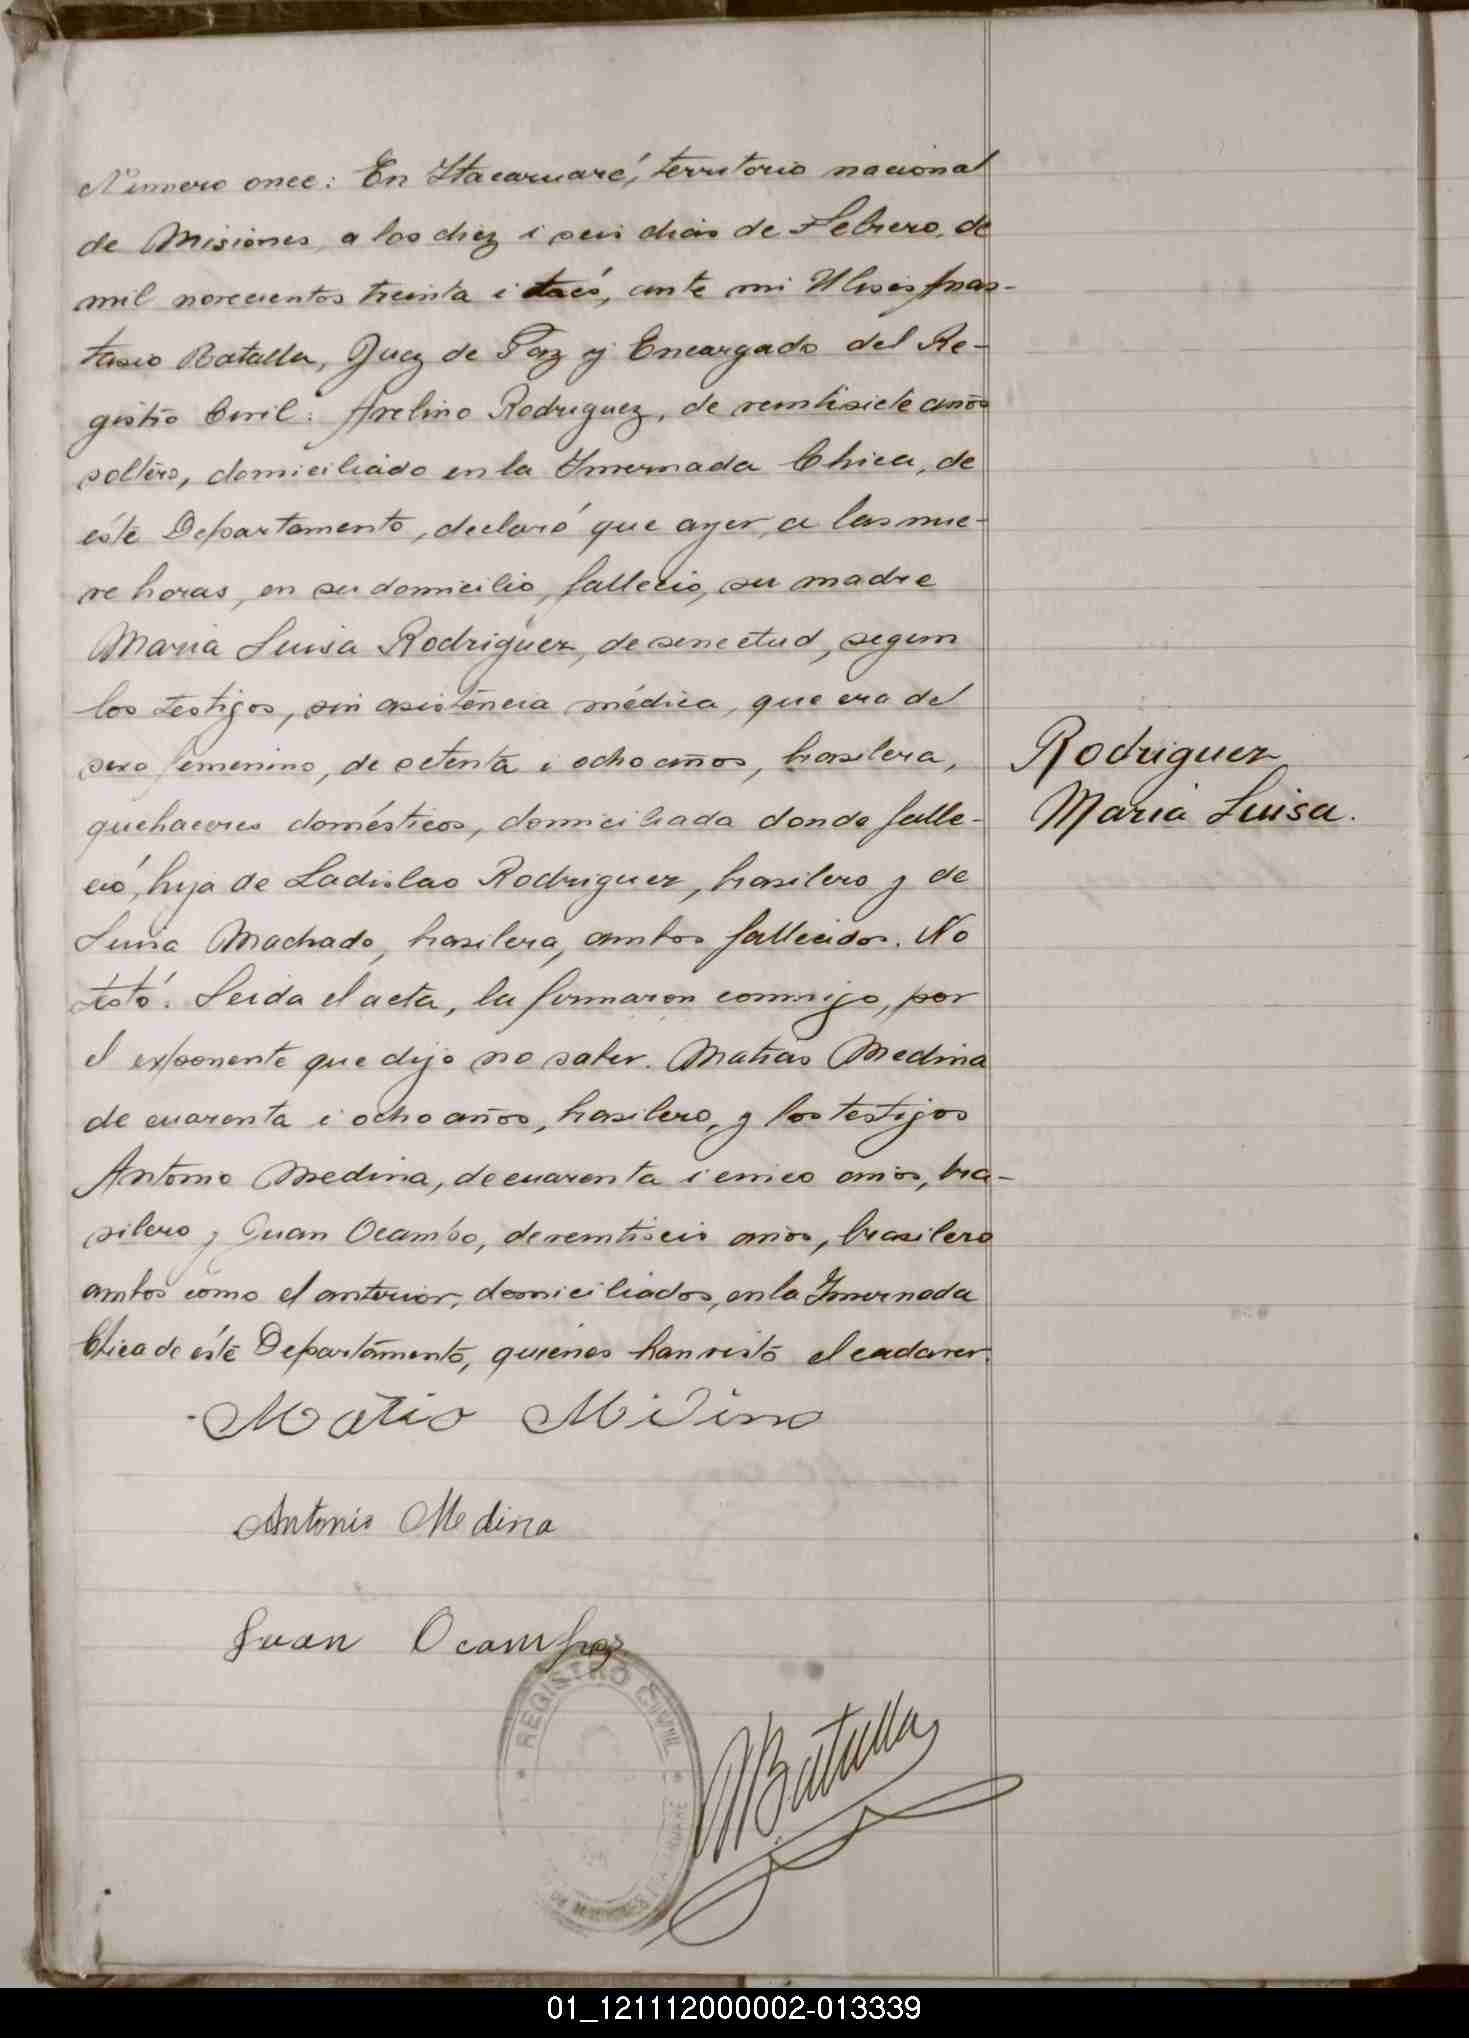 Número once: En Itacaruaré, territorio nacional
de Misiones, a los diez i seis dias de Febrero, de
mil novecientos treinta i tres, ante mi Ulises Anas-
tasio Batalla, Juez de Paz y Encargado del Re-
gistro Civil: Avelino Rodriguez, de veintisiete años
soltero, domiciliado en la Invernada Chica, de
éste Departamento, declaró que ayer, a las nue-
ve horas, en su domicilio, fallecio, su madre
Maria Luisa Rodriguez, de senectud, segun
los testigos, sin asistencia médica, que era del
sexo femenino, de setenta i ocho años, brasilera,
quehaceres domésticos, domiciliada donde falle-
ció, hija de Ladislao Rodriguez, brasilero y de
Luisa Machado, brasilera, ambos fallecidos. No
testó. Leida el acta, la firmaron conmigo, por
el exponente que dijo no saber. Matias Medina
de cuarenta i ocho años, brasilero, y los testigos
Antonio Medina, de cuarenta i cinco años, bra-
silero y Juan Ocampo, de veintiseis años, brasilero
ambos como el anterior, domiciliados, en la Invernada
Chica de éste Departamento, quienes han visto el cadaver.
Rodriguez
Maria Luisa.
Matis Midina
Antonio Medina
Juan Ocampo
REGISTRO CIVIL
UBatalla
01_121112000002-013339